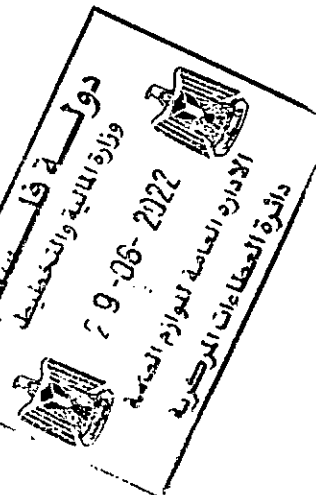 دولـــة فلـ
وزارة المالية والتخطيط
29-06-2022
الادارة العامة للوازم العامة
دائرة العطاءات المركزية